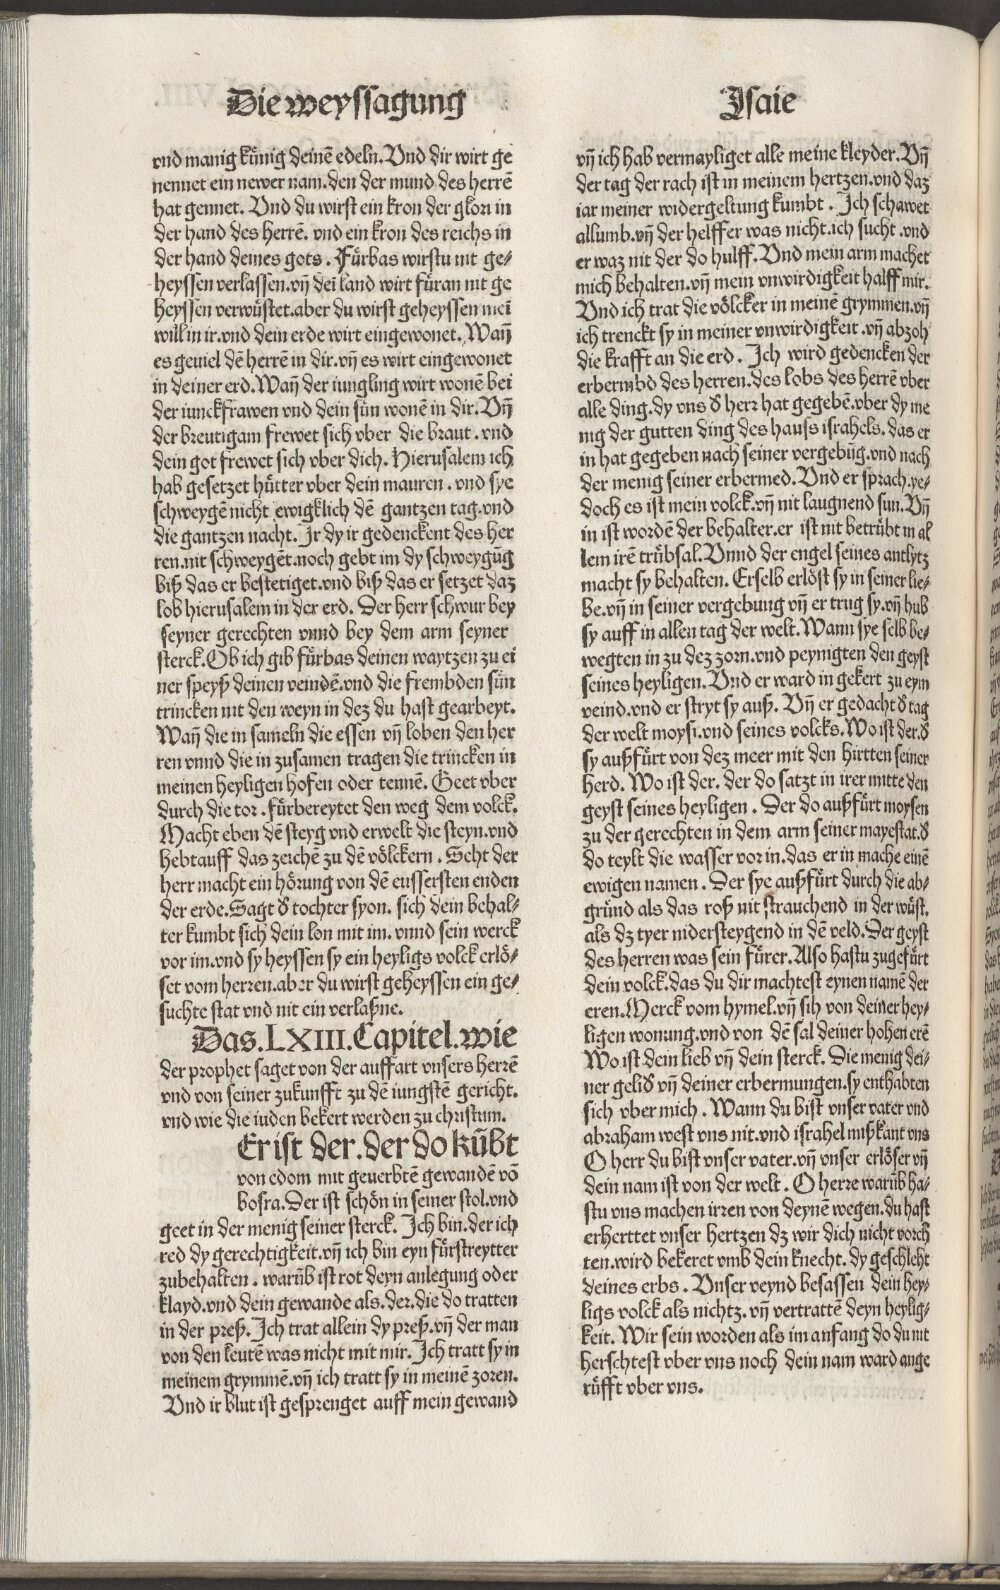 Die weyssagung
Jsaie
vnd manig künig deinē edeln. Vnd dir wirt ge
nennet ein newer nam. den der mund des herrē
hat gennet. Vnd du wirst ein kron der glori in
der hand des herrē. vnd ein kron des reichs in
der hand deines gots. Fürbas wirstu nit ge⸗
heyssen verlassen. vn̄ dei land wirt füran nit ge
heyssen verwüstet. aber du wirst geheyssen mei
will in ir. vnd dein erde wirt eingewonet. Wan̄
es geuiel dē herrē in dir. vn̄ es wirt eingewonet
in deiner erd. Wan̄ der iungling wirt wonē bei
der iunckfrawen vnd dein sün wonē in dir. Vn̄
der breutigam frewet sich vber die braut. vnd
dein got frewet sich vber dich. Hierusalem ich
hab gesetzet hütter vber dein mauren. vnd sye
schweygē nicht ewigklich dē gantzen tag. vnd
die gantzen nacht. Jr dy ir gedenckent des her
ren. nit schweygēt. noch gebt im dy schweygūg
biß das er bestetiget. vnd biß das er setzet daz
lob hierusalem in der erd. Der herr schwur bey
seyner gerechten vnnd bey dem arm seyner
sterck. Ob ich gib fürbas deinen waytzen zu ei
ner speyß deinen veindē. vnd die frembden sün
trincken nit den weyn in dez du hast gearbeyt.
Wan̄ die in sameln die essen vn̄ loben den her
ren vnnd die in zusamen tragen die trincken in
meinen heyligen hofen oder tennē. Geet vber
durch die tor. fürbereytet den weg dem volck.
Macht eben dē steyg vnd erwelt die steyn. vnd
hebt auff das zeichē zu dē völckern. Seht der
herr macht ein hörung von dē eussersten enden
der erde. Sagt d̓ tochter syon. sich dein behal⸗
ter kumbt sich dein lon mit im. vnnd sein werck
vor im. vnd sy heyssen sy ein heyligs volck erlö⸗
set vom herren. aber du wirst geheyssen ein ge⸗
suchte stat vnd nit ein verlaßne.
Das. LXIII. Capitel. wie
der prophet saget von der auffart vnsers herrē
vnd von seiner zukunfft zu dē iungstē gericht.
vnd wie die iuden bekert werden zu christum.
Er ist der. der do kūbt
von edom mit geuerbtē gewandē vō
bosra. Der ist schön in seiner stol. vnd
geet in der menig seiner sterck. Jch bin. der ich
red dy gerechtigkeit. vn̄ ich bin eyn fürstreytter
zubehalten. warūb ist rot deyn anlegung oder
klayd. vnd dein gewande als. der. die do tratten
in der preß. Jch trat allein dy preß. vn̄ der man
von den leutē was nicht mit mir. Jch tratt sy in
meinem grymmē. vn̄ ich tratt sy in meinē zoren.
Vnd ir blut ist gesprenget auff mein gewand
vn̄ ich hab vermayliget alle meine kleyder. Vn̄
der tag der rach ist in meinem hertzen. vnd daz
iar meiner widergeltung kumbt. Jch schawet
allumb. vn̄ der helffer was nicht. ich sucht. vnd
er waz nit der do hulff. Vnd mein arm machet
mich behalten. vn̄ mein vnwirdigkeit halff mir.
Vnd ich trat die völcker in meinē grymmen. vn̄
ich trenckt sy in meiner vnwirdigkeit. vn̄ abzoh
die krafft an die erd. Jch wird gedencken der
erbermbd des herren. des lobs des herrē vber
alle ding. dy vns d̓ herr hat gegebē. vber dy me
nig der gutten ding des hauss israhels. das er
in hat gegeben nach seiner vergebūg. vnd nach
der menig seiner erbermed. Vnd er sprach. ye⸗
doch es ist mein volck. vn̄ nit laugnend sun. Vn̄
in ist wordē der behalter. er ist nit betrübt in al
lem irē trübsal. Vnnd der engel seines antlytz
macht sy behalten. Er selb erlöst sy in seiner lie⸗
be. vn̄ in seiner vergebung vn̄ er trug sy. vn̄ hub
sy auff in allen tag der welt. Wann sye selb be⸗
wegten in zu dez zorn. vnd peynigten den geyst
seines heyligen. Vnd er ward in gekert zu eym
veind. vnd er stryt sy auß. Vn̄ er gedacht d̓ tag
der welt moysi. vnd seines volcks. Wo ist der. d̓
sy außfürt von dez meer mit den hirtten seiner
herd. Wo ist der. der do satzt in irer mitte den
geyst seines heyligen. Der do außfürt moysen
zu der gerechten in dem arm seiner mayestat. d̓
do teylt die wasser vor in. das er in mache einē
ewigen namen. Der sye außfürt durch die ab⸗
gründ als das roß nit strauchend in der wüst.
als dz tyer nidersteygend in dē veld. Der geyst
des herren was sein fürer. Also hastu zugefürt
dein volck. das du dir machtest eynen namē der
eren. Merck vom hymel. vn̄ sih von deiner hey⸗
ligen wonung. vnd von dē sal deiner hohen erē
Wo ist dein lieb vn̄ dein sterck. Die menig dei⸗
ner gelid̓ vn̄ deiner erbermungen. sy enthabten
sich vber mich. Wann du bist vnser vater vnd
abraham west vns nit. vnd israhel mißkant vns
O herr du bist vnser vater. vn̄ vnser erlöser vn̄
dein nam ist von der welt. O herre warūb ha⸗
stu vns machen irren von deynē wegen. du hast
erherttet vnser hertzen dz wir dich nicht vorch
ten. wird bekeret vmb dein knecht. dy geschlecht
deines erbs. Vnser veynd besassen dein hey⸗
ligs volck als nichtz. vn̄ vertrattē deyn heylig⸗
keit. Wir sein worden als im anfang do du nit
herschtest vber vns noch dein nam ward ange
rüfft vber vns.